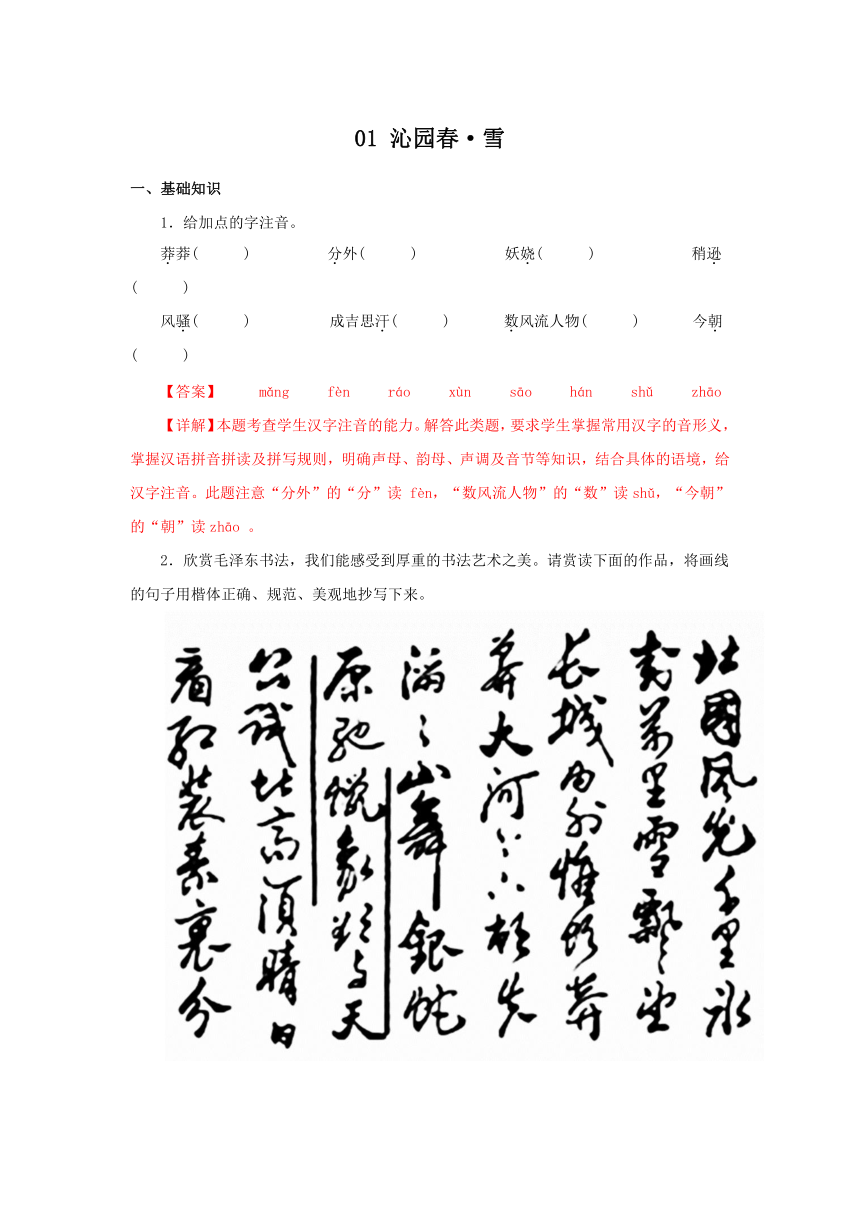 01 沁园春·雪
一、基础知识
1．给加点的字注音。
莽莽(　　) 分外(　　) 妖娆(　　) 稍逊
(　　)
风骚(　　) 成吉思汗(　　) 数风流人物(　　) 今朝
(　　)
【答案】 mǎng fèn ráo xùn sāo hán shǔ zhāo
【详解】本题考查学生汉字注音的能力。解答此类题，要求学生掌握常用汉字的音形义，
掌握汉语拼音拼读及拼写规则，明确声母、韵母、声调及音节等知识，结合具体的语境，给
汉字注音。此题注意“分外”的“分”读 fèn，“数风流人物”的“数”读 shǔ，“今朝”
的“朝”读 zhāo 。
2．欣赏毛泽东书法，我们能感受到厚重的书法艺术之美。请赏读下面的作品，将画线
的句子用楷体正确、规范、美观地抄写下来。
北國風光千里冰
封萬里雪飄〻望
长城内外惟馀莽
莽大河上下顿失
滔〻山舞銀蛇
原驰蠟象欲与天
公试比高须晴日
看红装素裹分